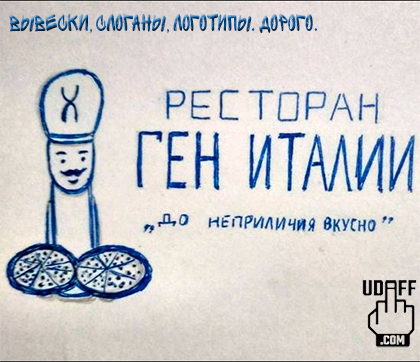 ВЫВЕСКИ, СЛОГАНЫ, ЛОГОТИПЫ. ДОРОГО.
Х
РЕСТОРАН
ГЕН ИТАЛИИ
„ДО НЕПРИЛИЧИЯ ВКУСНО”
UDAFF
.COM